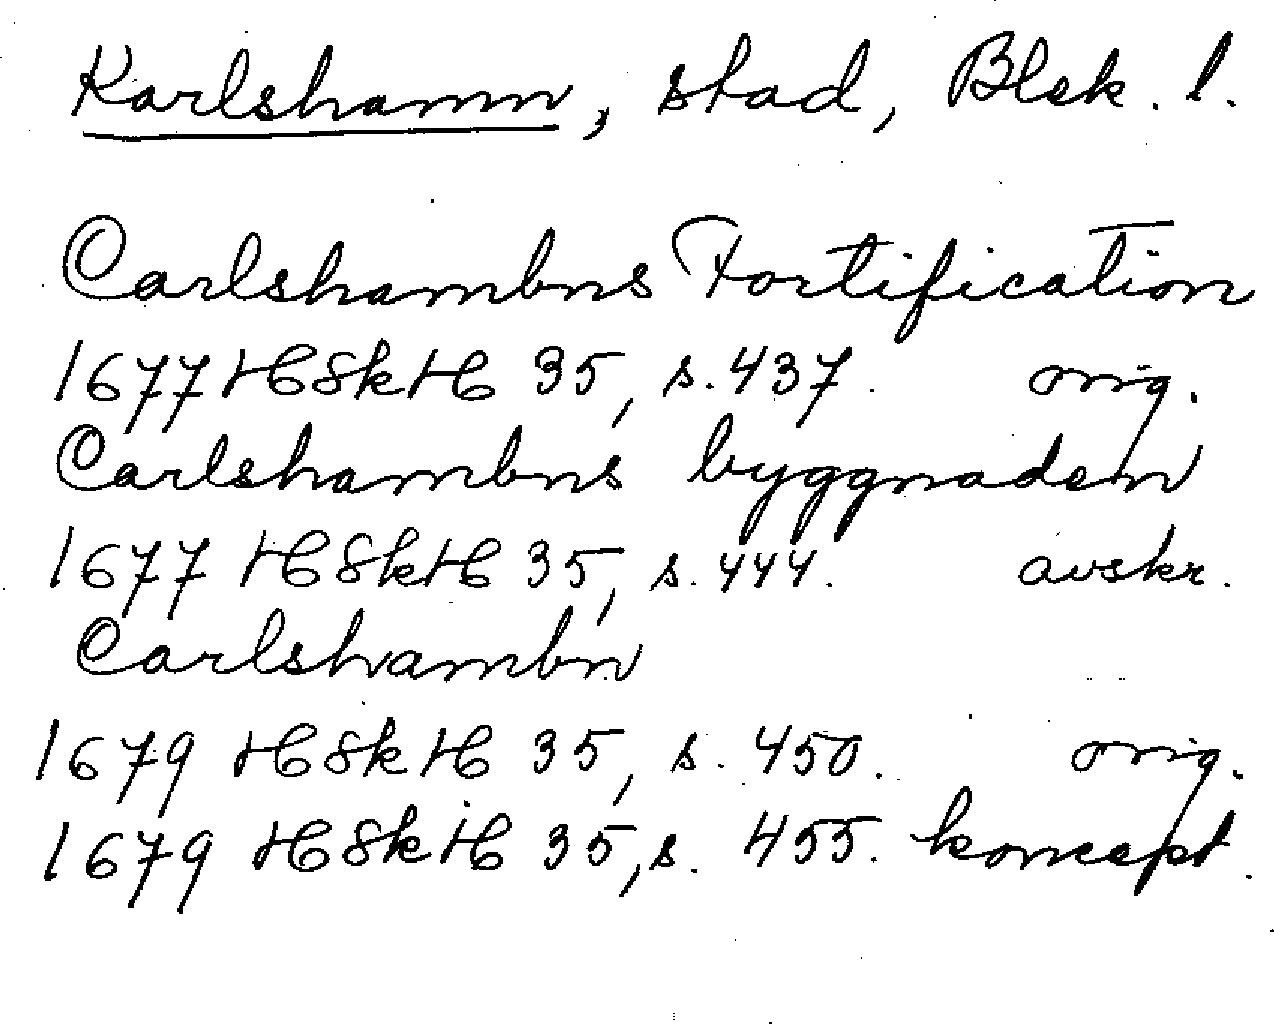 Karlshamn, stad, Blek. l.
Carlshambns Fortification
1677 HSkH 35, s. 437. orig.
Carlshambns byggnaden
1677 HSkH 35, s. 444. avskr.
Carlshambn
1679 HSkH 35, s. 450. orig.
1679 HSkH 35, s. 455. koncept.